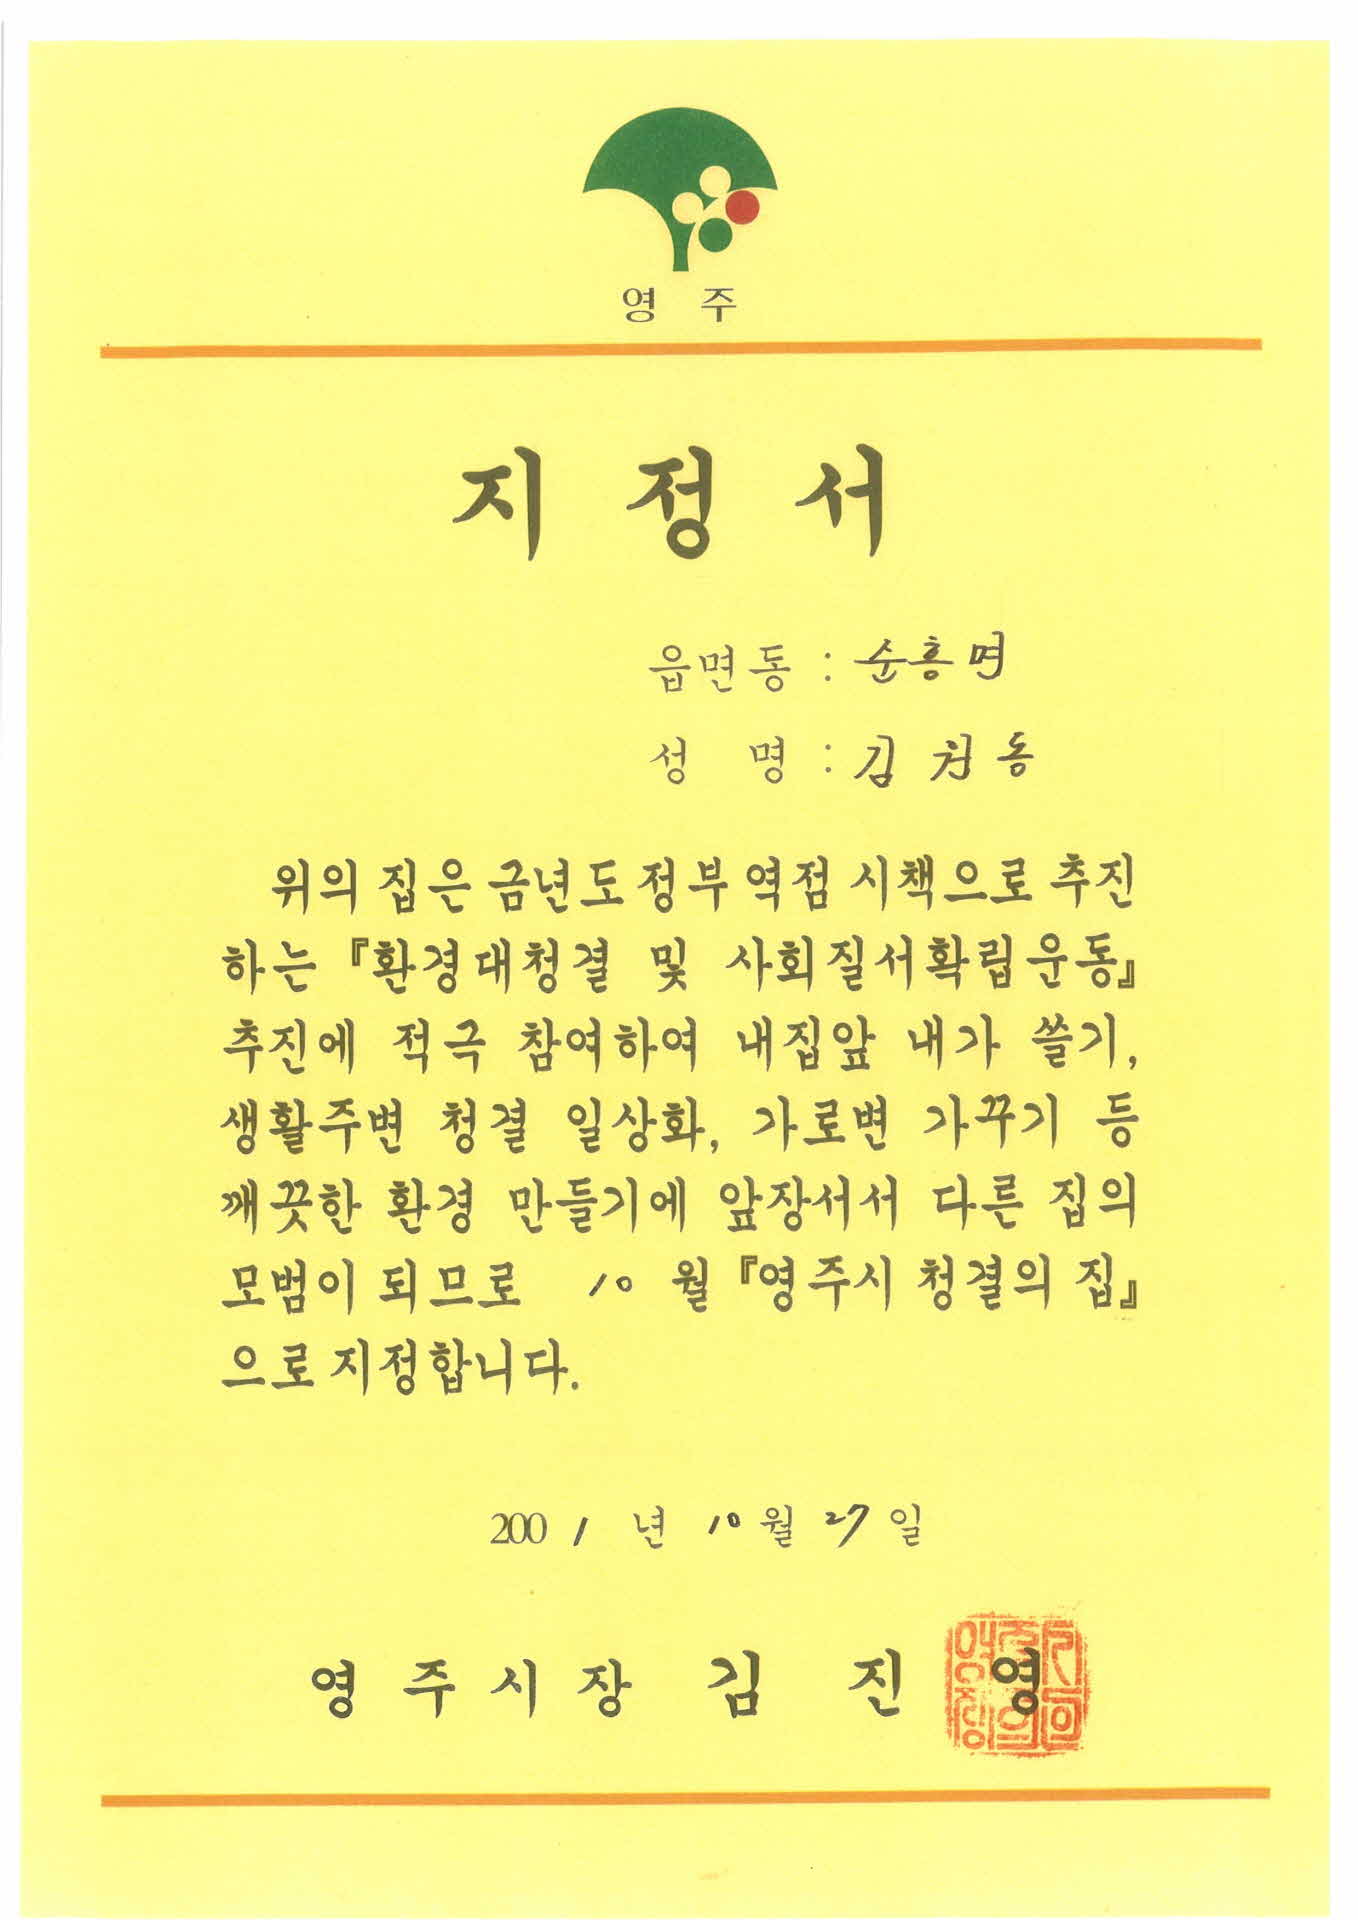 영 주
지 정 서
읍면동 : 순흥면
성 명 : 김 원 동
위의 집은 금년도 정부 역점 시책으로 추진
하는 『환경대청결 및 사회질서확립운동』
추진에 적극 참여하여 내집앞 내가 쓸기,
생활주변 청결 일상화, 가로변 가꾸기 등
깨끗한 환경 만들기에 앞장서서 다른 집의
모범이 되므로 10 월 『영주시 청결의 집』
으로 지정합니다.
2001 년 10 월 27 일
영 주 시 장 김 진 영